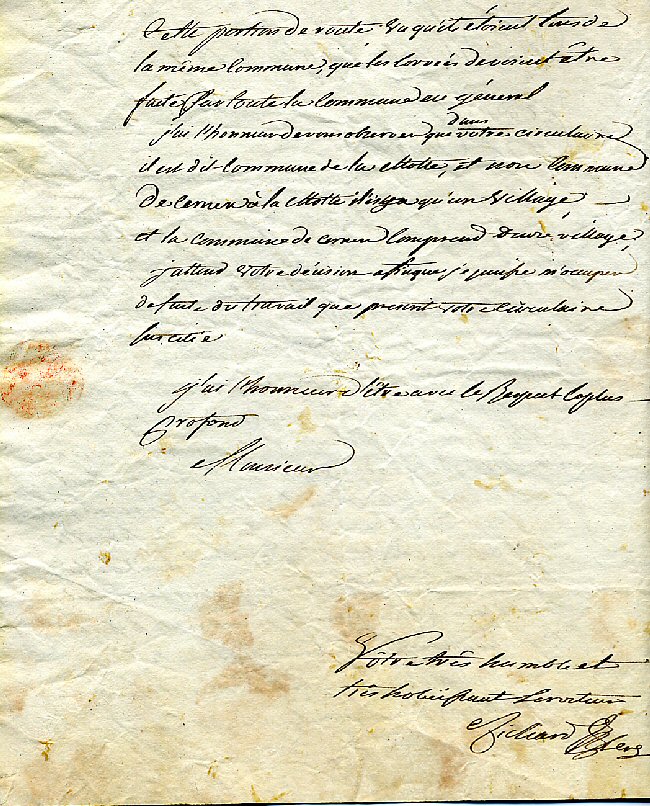 Cette portion de route vu qu'ils étoient tous de
la même Commune, que les Corvées devoient être
faite par toute la Commune en général
j'ai l'honneur de vous observer que dans votre circulaire
il est dit Commune de la Motte, et non Commune
De à la Motte il n'y a qu'un Village
et la commune de Comprend Village,
j'attend votre décision afin que je puisse m'occuper
de suite du travail que prescrit votre Circulaire
Sus citée
j'ai l'honneur d'être avec le Respect le plus
profond
Monsieur
Votre très humble et
très hobéissant Serviteur
Richard